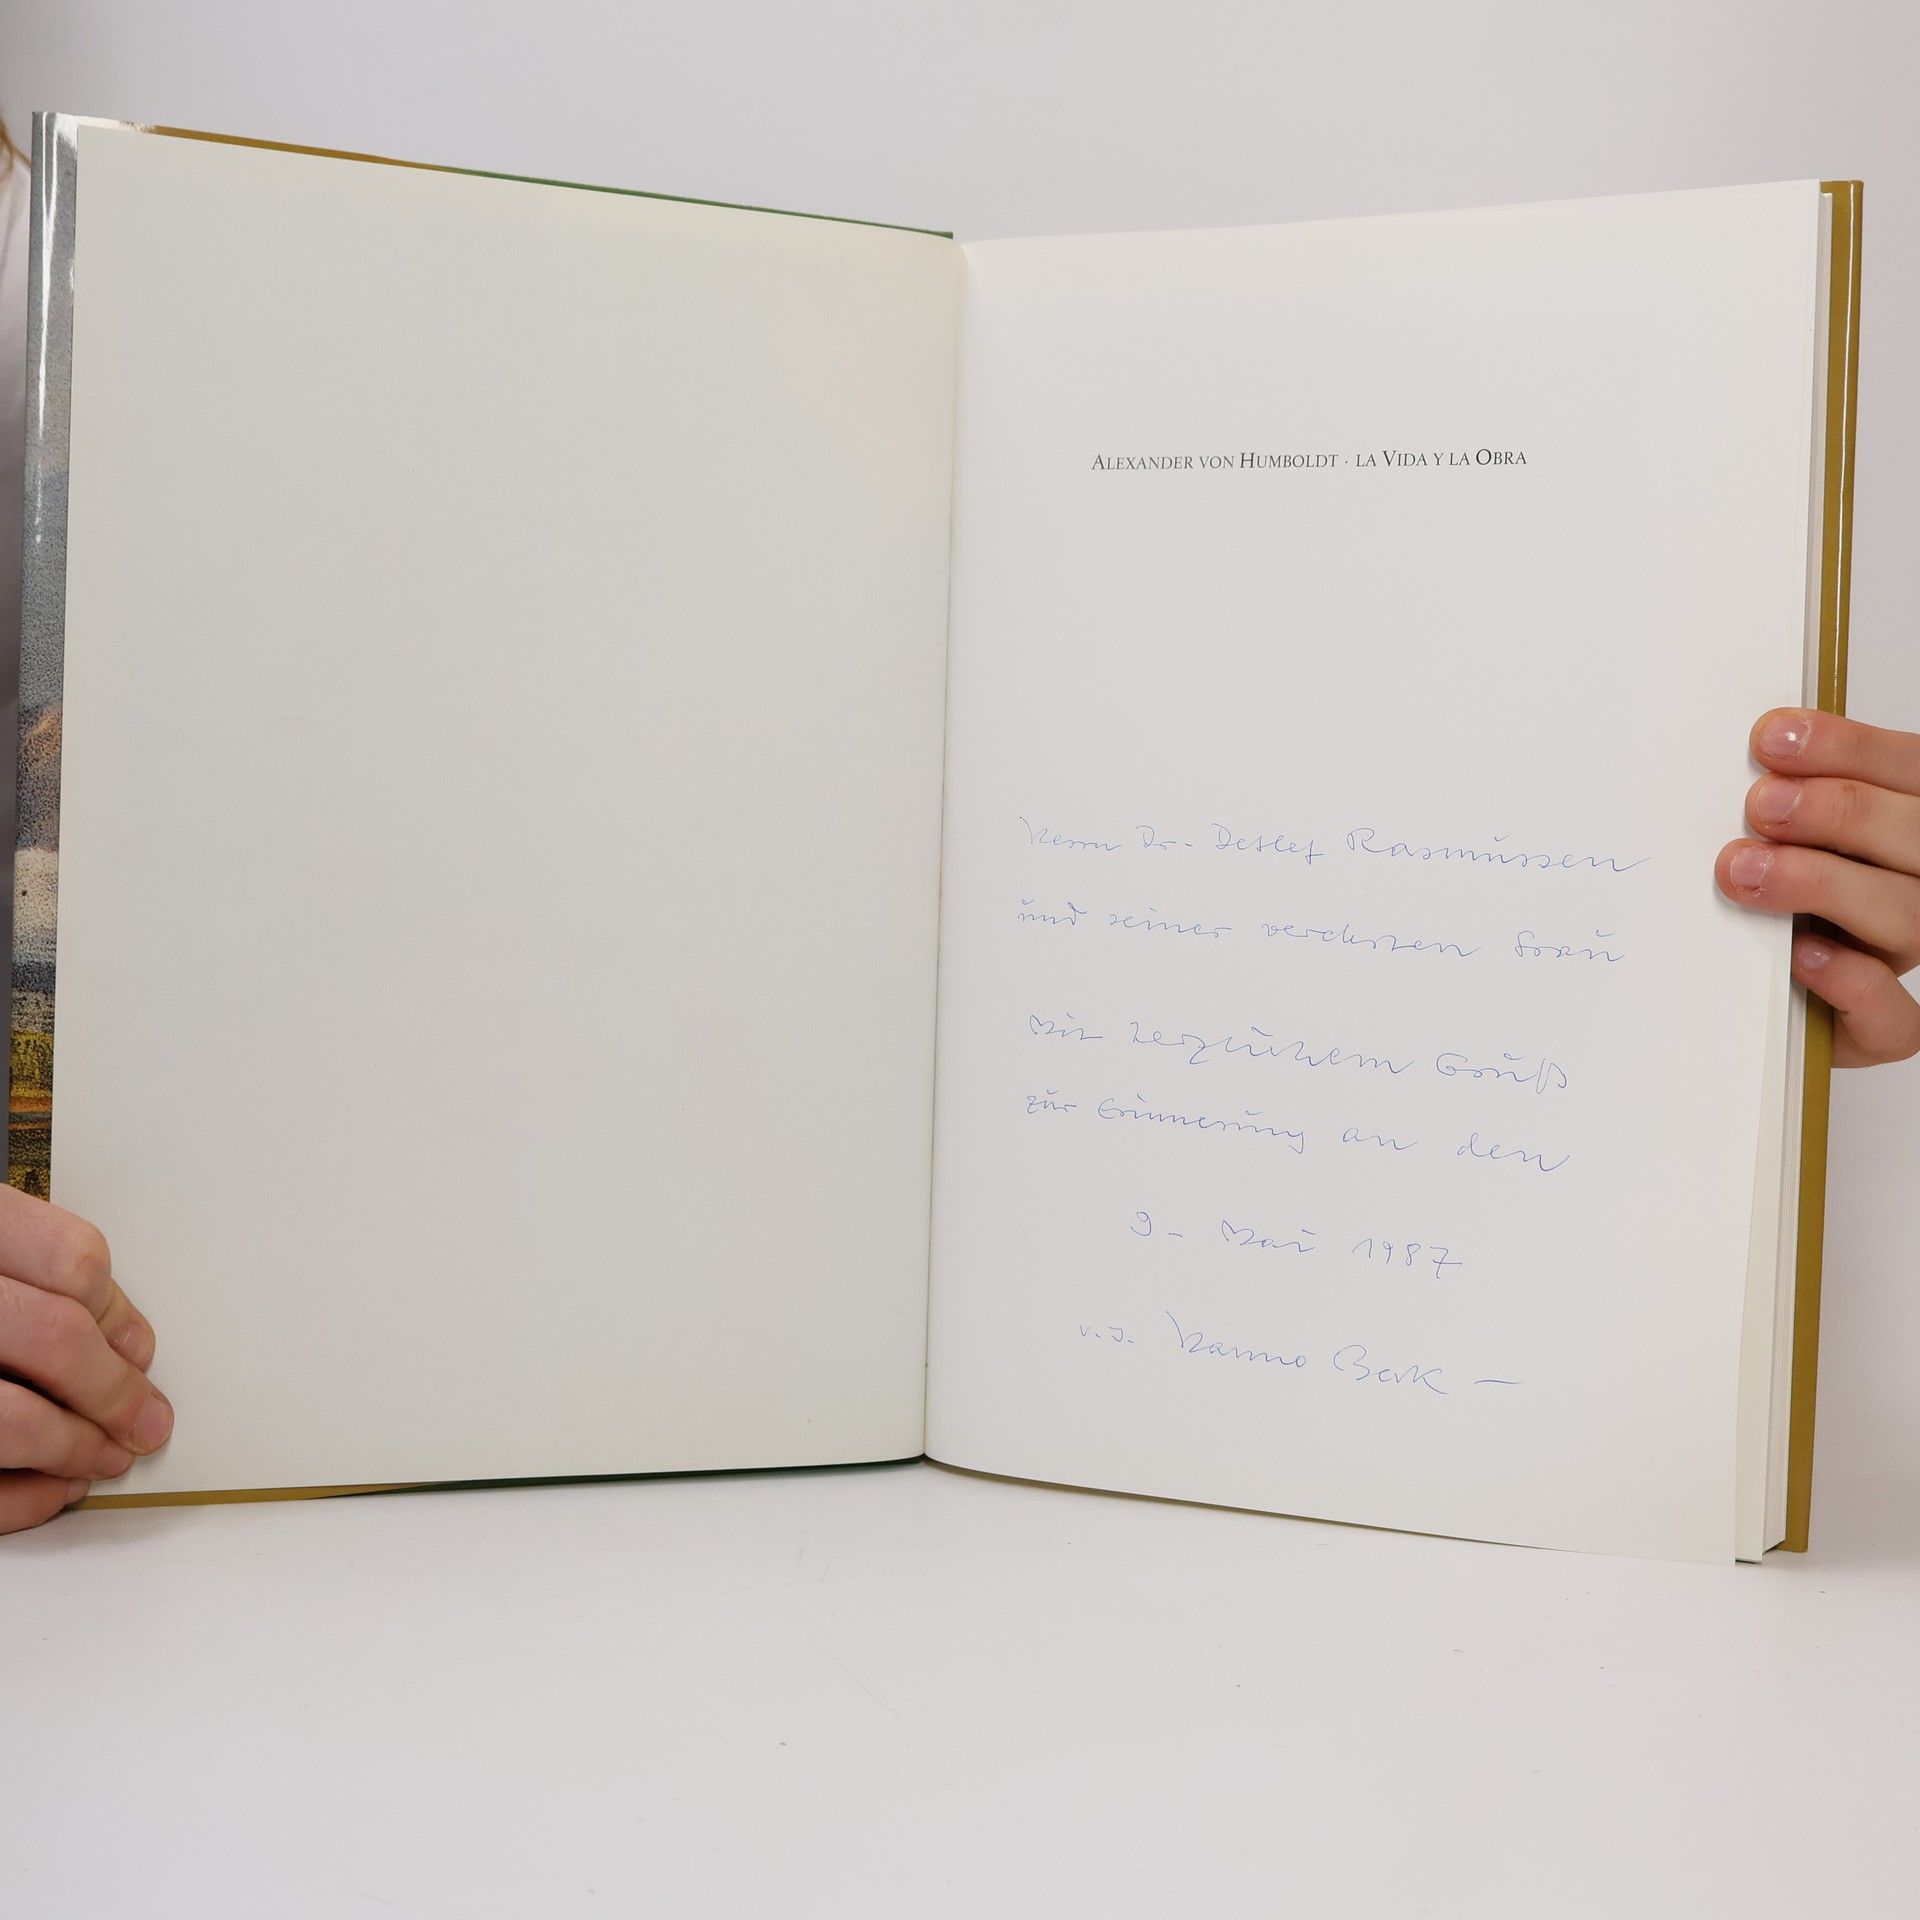 ALEXANDER VON HUMBOLDT · LA VIDA Y LA OBRA
Herrn Dr. Detlef Rasmussen
und seiner verehrten Frau
Mit herzlichem Gruß
zur Erinnerung an den
9. Mai 1987
v. J. Hanno Beck –